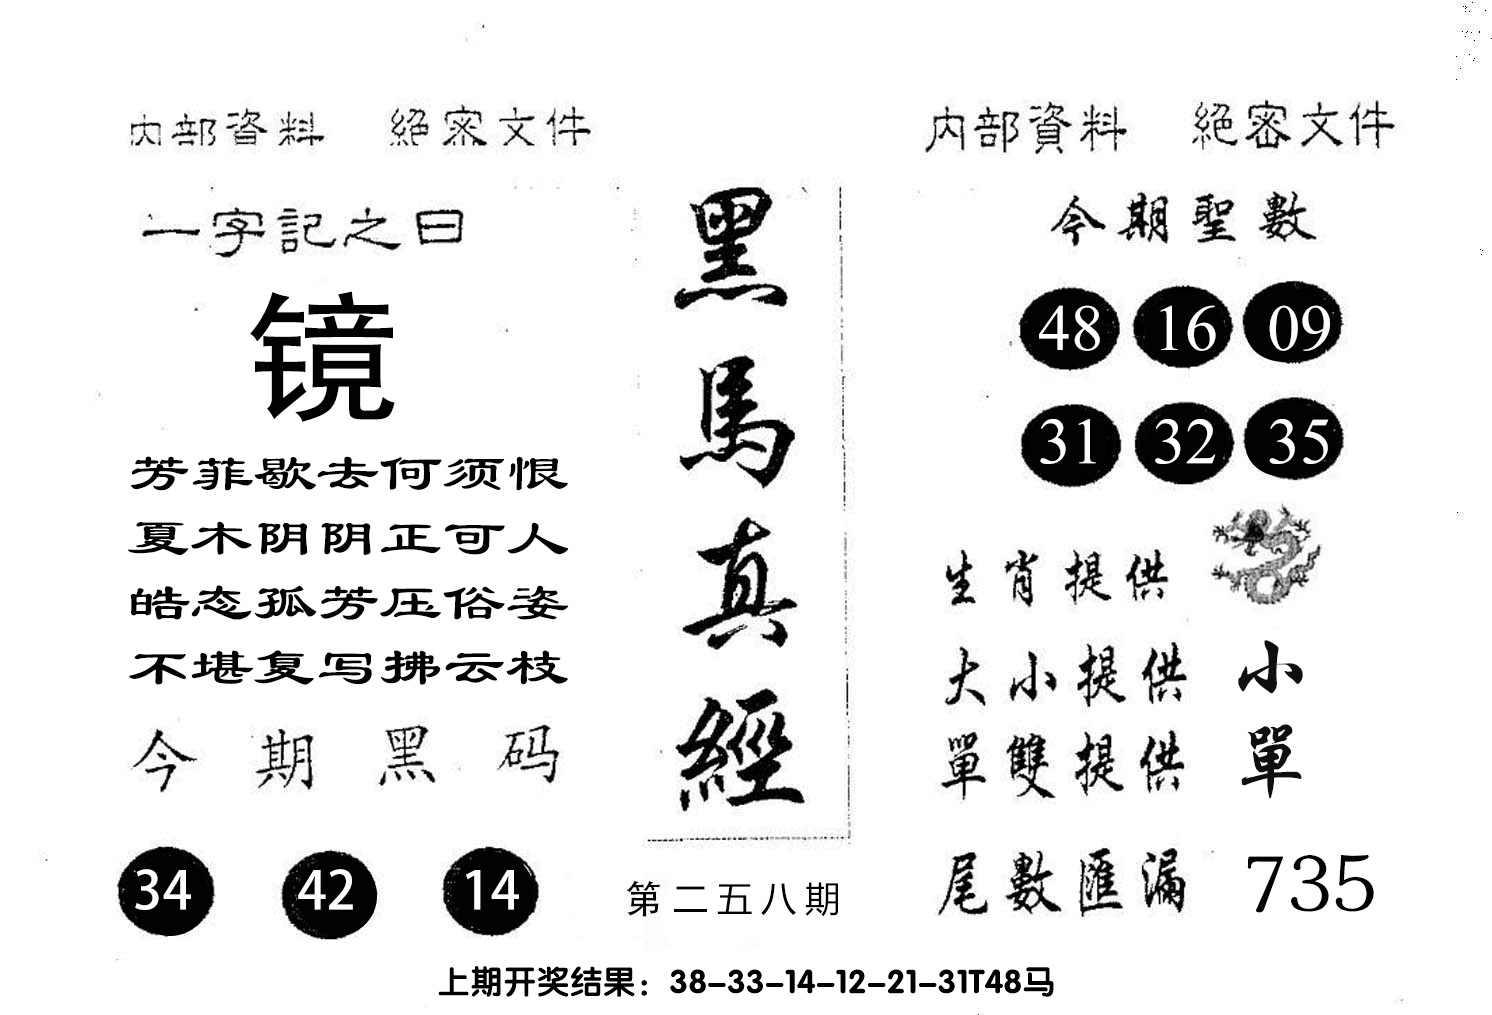 内部資料 絕密文件
一字記之曰
镜
芳菲歇去何须恨
夏木阴阴正可人
皓态孤芳压俗姿
不堪复写拂云枝
今期黑码
34 42 14
黑馬真經
第二五八期
内部資料 絕密文件
今期聖數
48 16 09
31 32 35
生肖提供
大小提供 小
單雙提供 單
尾數匯漏 735
上期开奖结果：38-33-14-12-21-31T48马